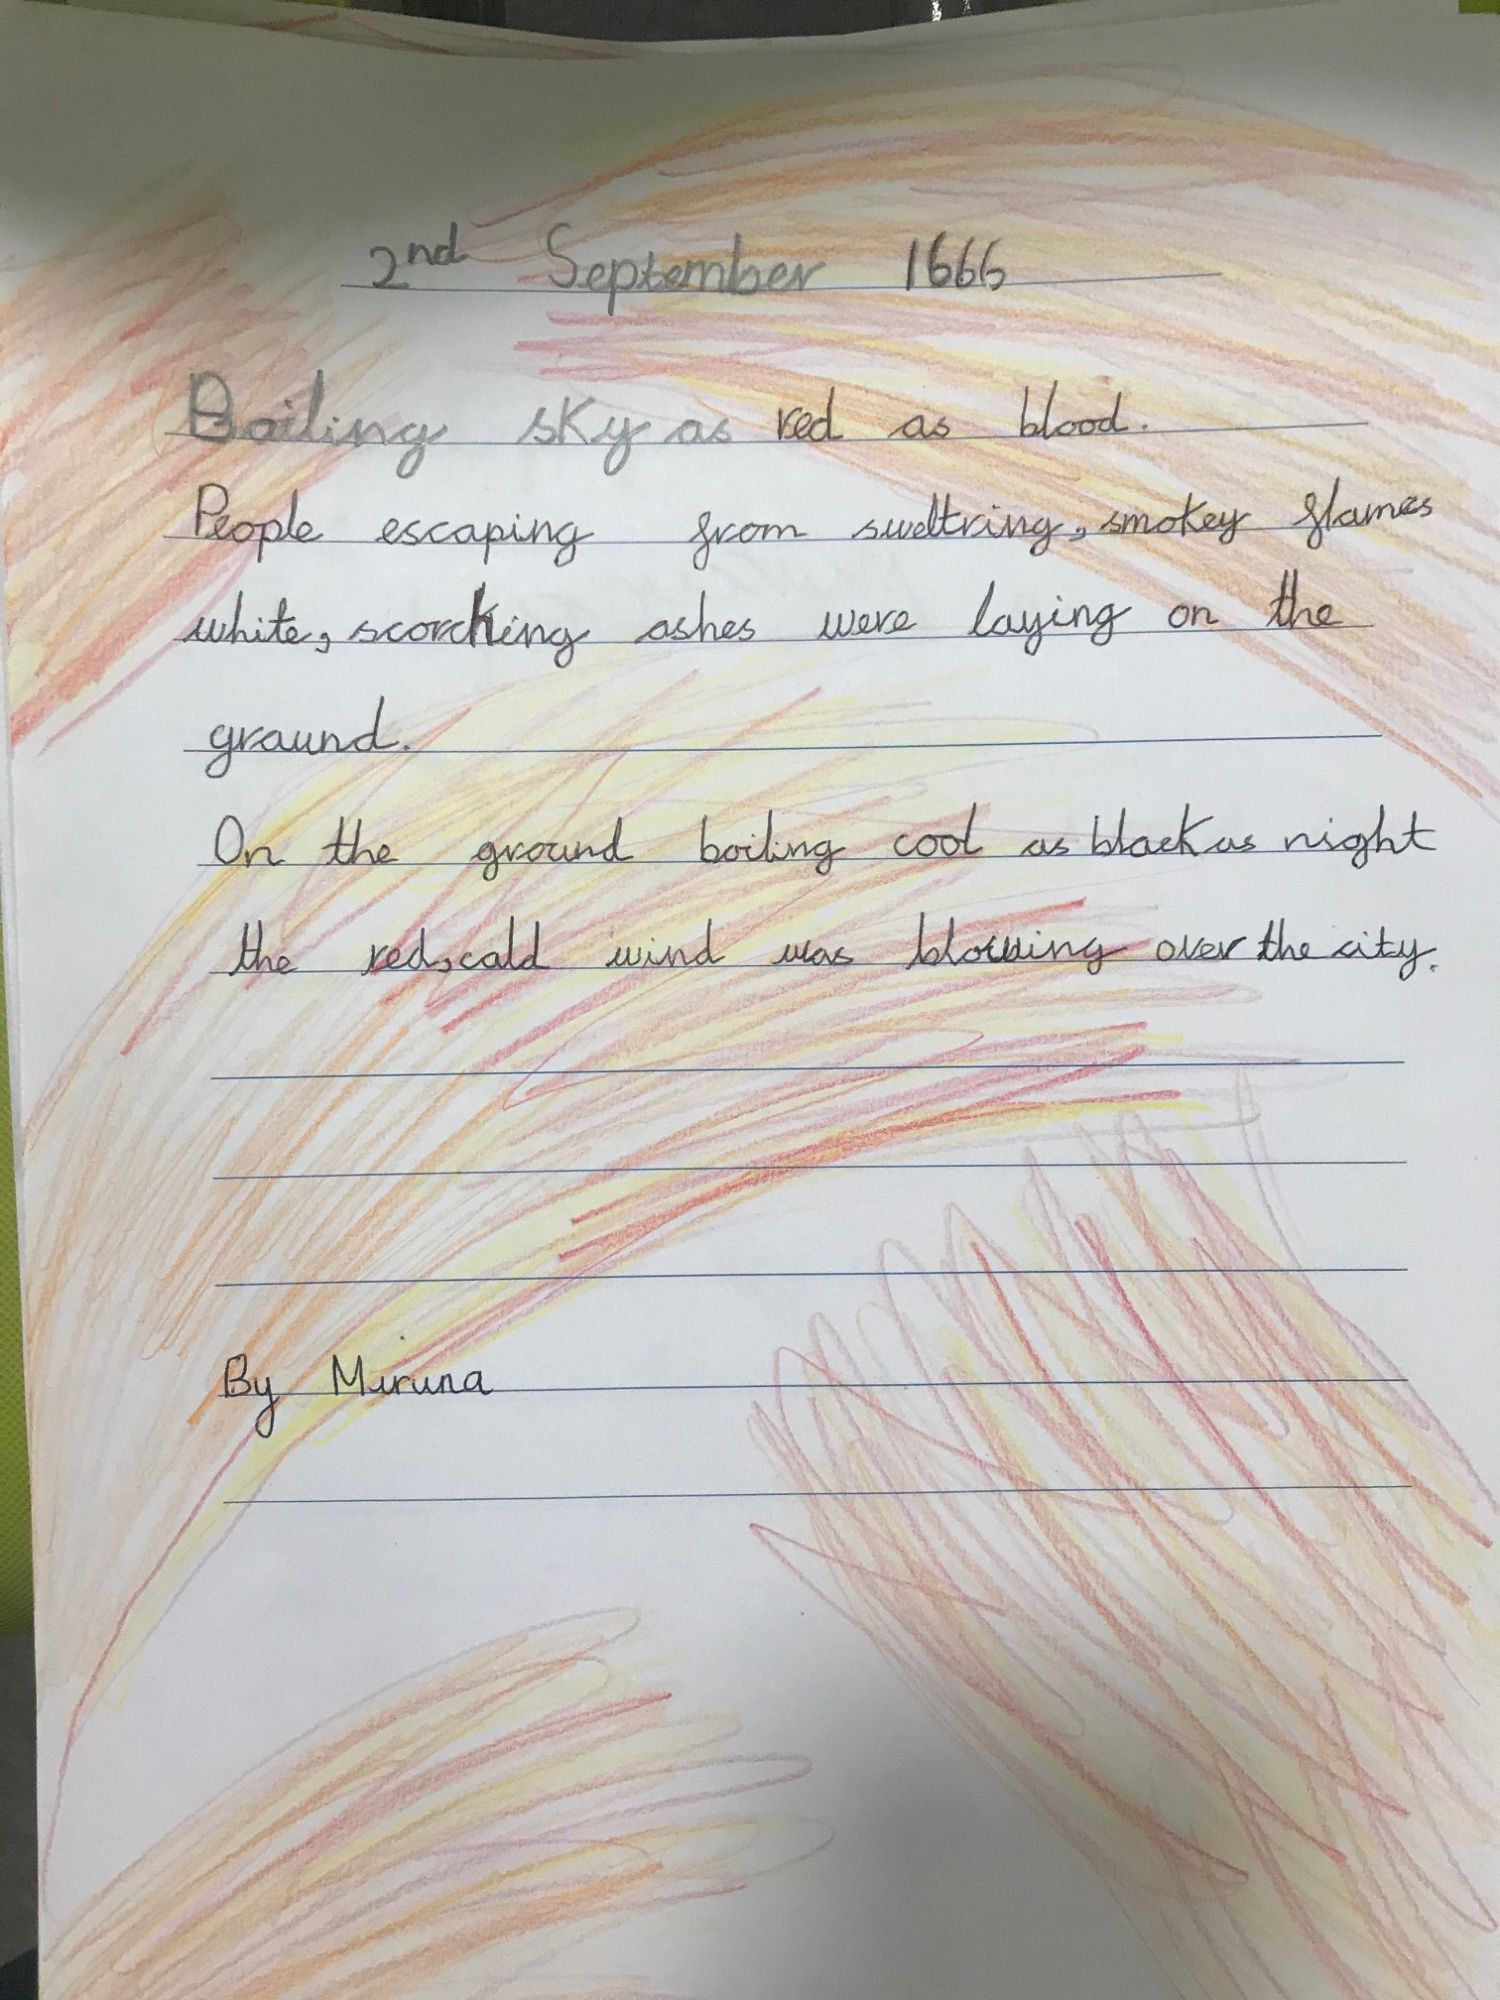 2nd September 1666
Boiling sky as red as blood.
People escaping from sweltring, smokey flames
white, scorching ashes were laying on the
graund.
On the ground boiling cool as black as night
the red, cald wind was blowing over the city.
By Miruna